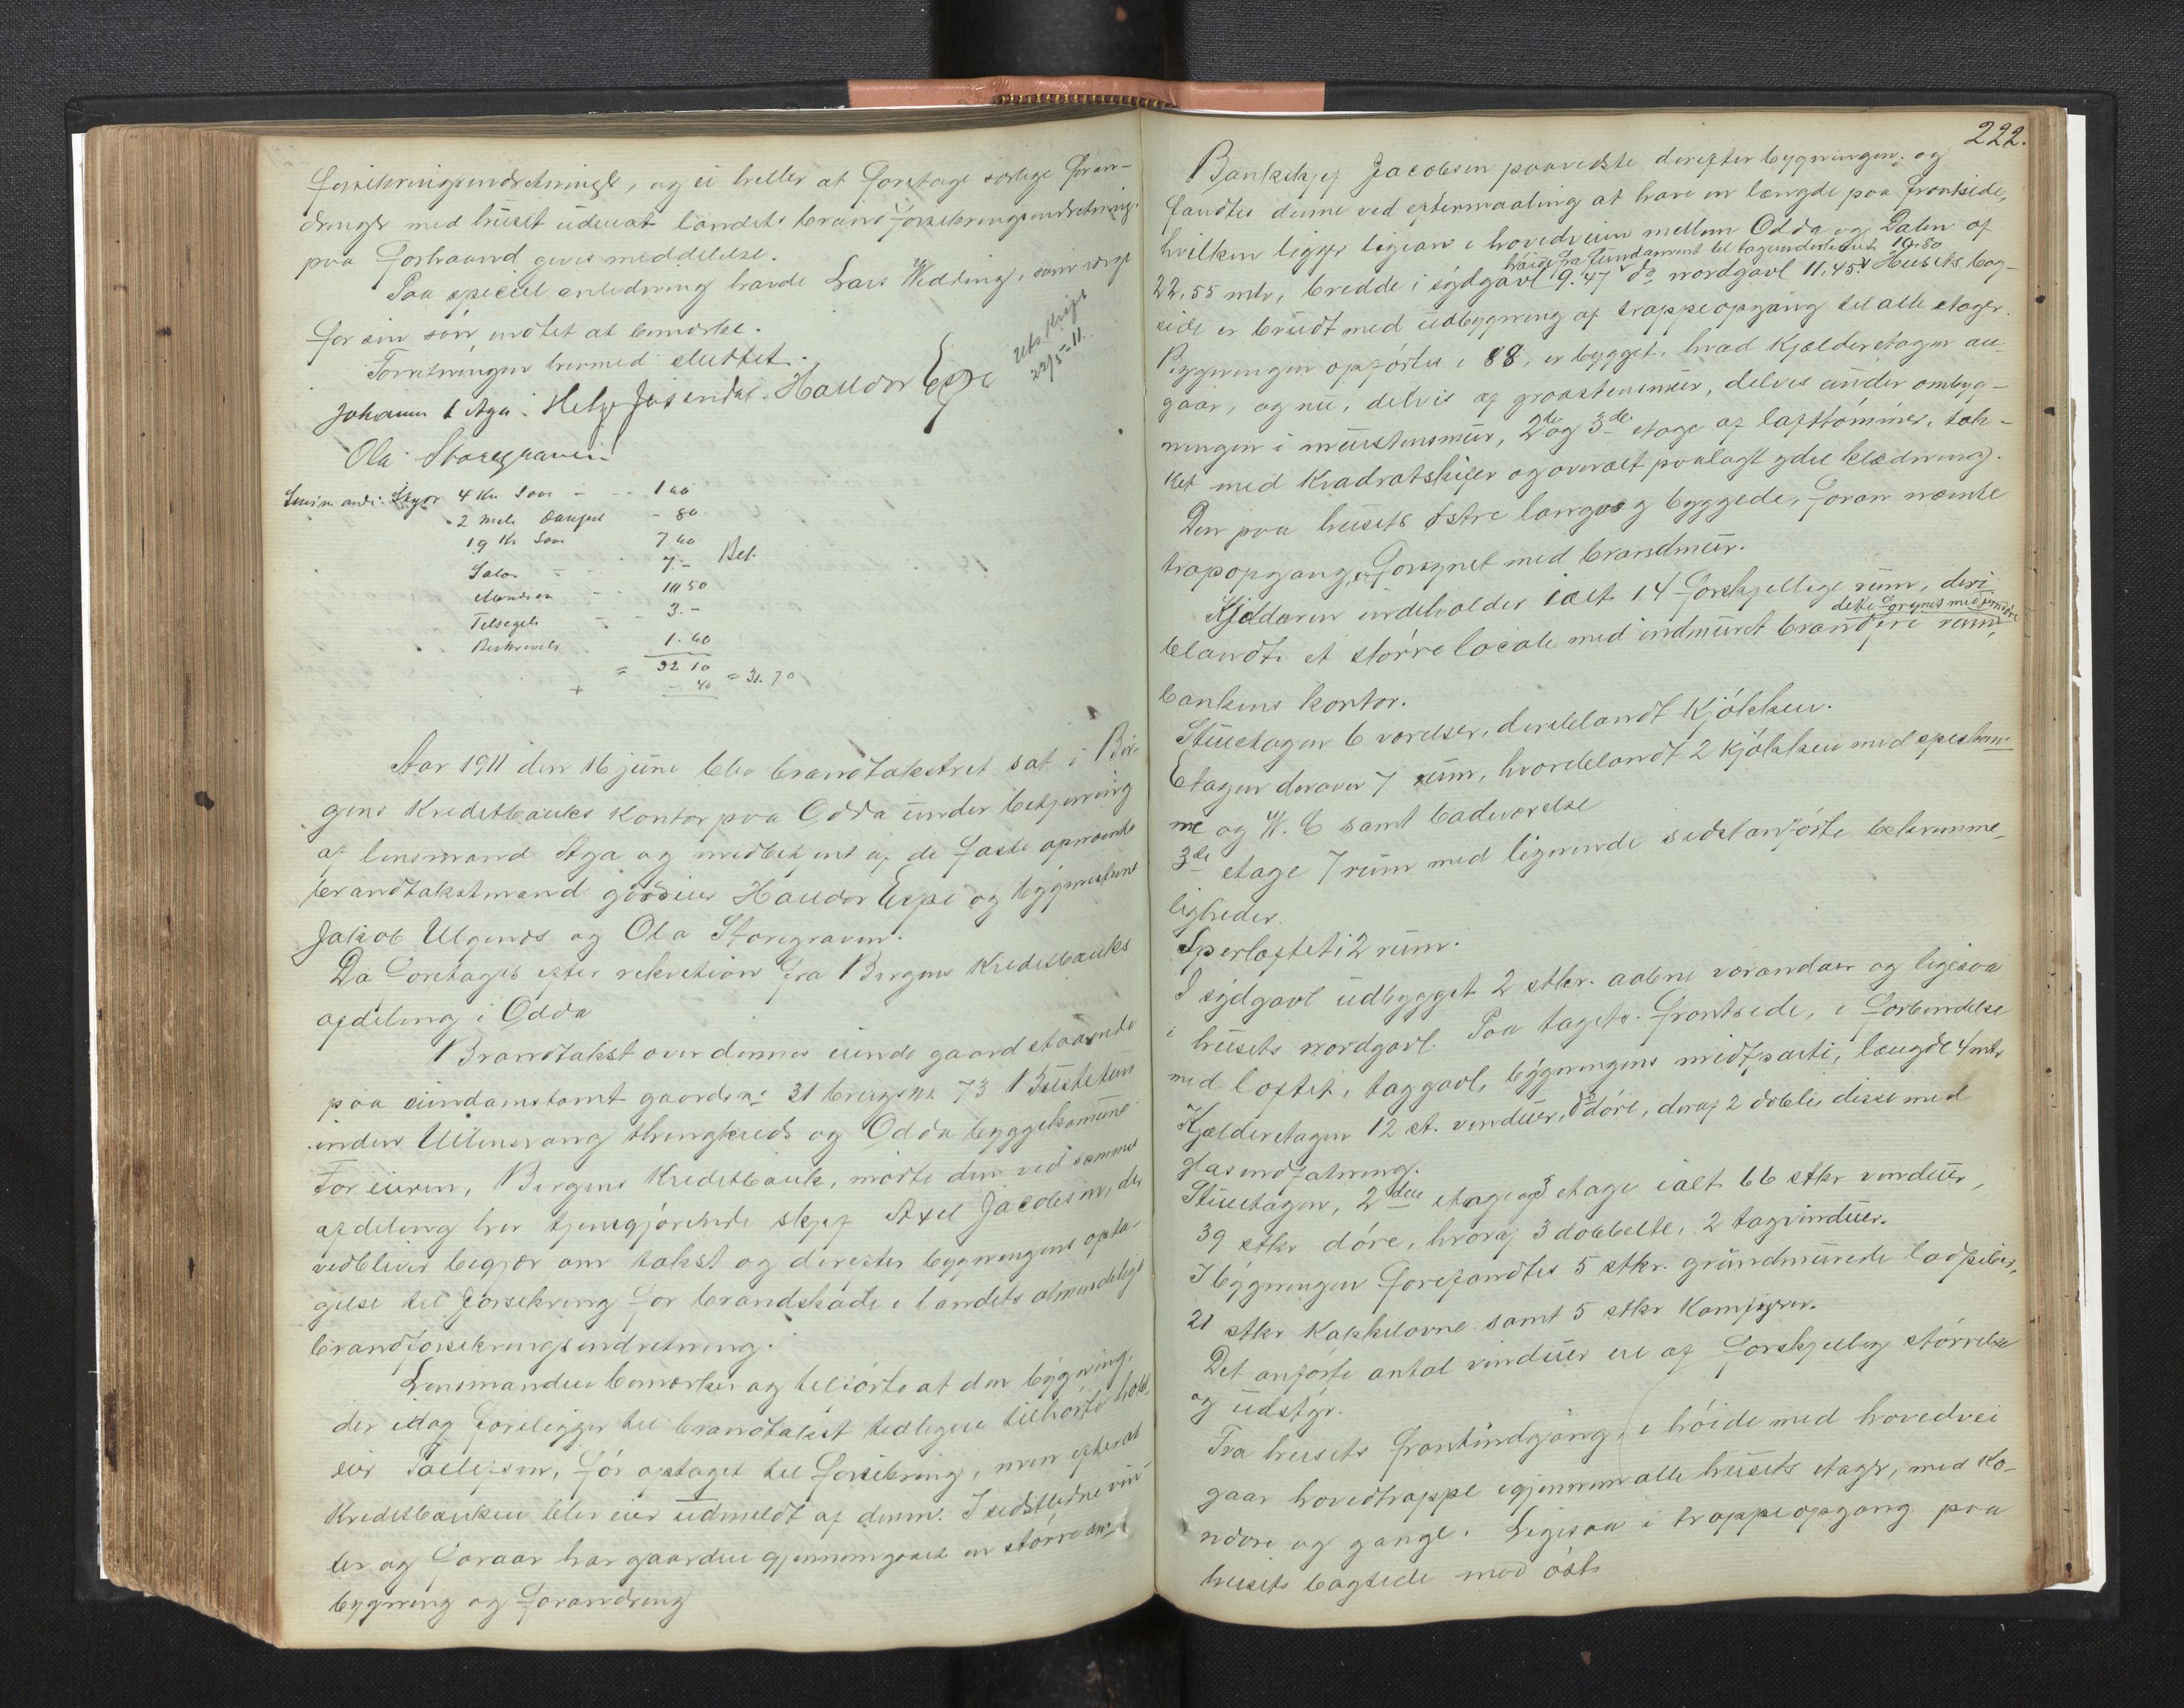 forsikringsindretningen, og ei heller at foretage særlige foran-
dringer med huset uden at landets brandforsikringsindretning
paa forhaand gives meddelelse.
Paa speciel anledning havde Lars Wedding, som værge
for sin søn intet at bemærke.
Forretningen hermed sluttet.
Johannes L Aga. Helge Jøsendal. Halldor Espe
Ola Storegraven
Uts. krift
22/5-11.
4 Kr
2 mils
- 80
19 Km
7 60
7.-
Bet.
3.-
1.60
= 32 10
- 40 = 31.70
Aar 1911 den 16 june blev brandtakstret sat i Ber-
gens Kreditbanks kontor paa Odda under betjening
af lensmand Aga og medbetjent af de faste opnævnte
brandtakstmænd gårdeier Halldor Espe og bygmesterne
Jakob Ulgenes og Ola Storegraven.
Da foretages efter rekvition fra Bergens Kreditbanks
afdeling i Odda
Brandtakst over dennes eiende gaard staaende
paa eiendomstomt gaards no 31 brugs no 73 Bustetun
inden Ullensvang thingkreds og Odda byggekomune
For eieren, Bergens Kreditbank, mødte den ved sammes
afdeling her tjenesgjørende skjef Axel Jacobsen, der
vedbliver begjær om takst og derefter bygningens opta-
gelse til forsikring for brandskade i landets almindelige
brandforsikringsindretning.
Lensmanden bemærker og tilførte at den bygning,
der idag foreligger til brandtakst tidligere tilhørte hotel-
eier Tollefsen, før optaget til forsikring, men efterat
Kreditbanken blev eier udmeldt af denne. I sidstledne vin-
ter og foraar har gaarden gjennemgaaet en større om-
bygning og forandring
222.
Bankskjef Jacobsen paaviste derefter bygningen og
fandtes denne ved eftermaaling at have en længde paa frontside,
hvilken ligger ligean i hovedveien mellem Odda og Dalen af
høide fra fundament til tagunderkant 10.80
22,55 mtr, bredde i sydgavl 9.47 do nordgavl 11.45. Husets bag-
side er brudt med udbygning af trappeopgang til alle etager.
Bygningen opførtes i 88, er bygget, hvad kjælderetagen an-
gaar, og nu, delvis af graastensmur, delvis under ombyg-
ningen i murstensmur, 2de og 3de etage af lafttømmer, tæk-
ket med kvadratskifer og overalt paalagt ydel klædning.
Den paa husets østre langvæg byggede, foran nævnte
trapopgang, er forsynet med brandmur.
Kjelderen indeholder ialt 14 forskjellige rum, deri
blandt et større locale med indmuret brandfrit rum,
dette forsynet med jerndøre
bankens kontor.
Stuetagen 6 værelser, deriblandt kjøkken.
Etagen derover 7 rum, hvoriblandt 2 kjøkken med spiskam-
me og W. C samt badeværelse
3de etage 7 rum med lignende sidstanførte bekvemme-
ligheder.
Sperloftet i 2 rum.
I sydgavl udbygget 2 stkr. aabne verandaer og ligesaa
i husets nordgavl. Paa tagets frontside, i forbindelse
med loftet, taggavl, bygningens midtparti, længde 4 mtr
Kjelderetagen 12 st. vinduer, 8 døre, deraf 2 doble, disse med
glasindfatning.
Stuetagen, 2den etage og 3 etage ialt 66 stkr vinduer,
39 stkr døre, hvoraf 3 dobbelte, 2 tagvinduer.
I bygningen forefandtes 5 stkr. grundmurede lodpiber,
21 stkr kakkelovne samt 5 stkr komfyrer.
Det anførte antal vinduer ere af forskjellig størrelse
og udstyr.
Fra husets frontindgang, i høide med hovedvei
gaar hovedtrappe igjennem alle husets etager, med ko-
ridore og gange. Ligesaa i trappeopgang paa
husets bagside mod øst.